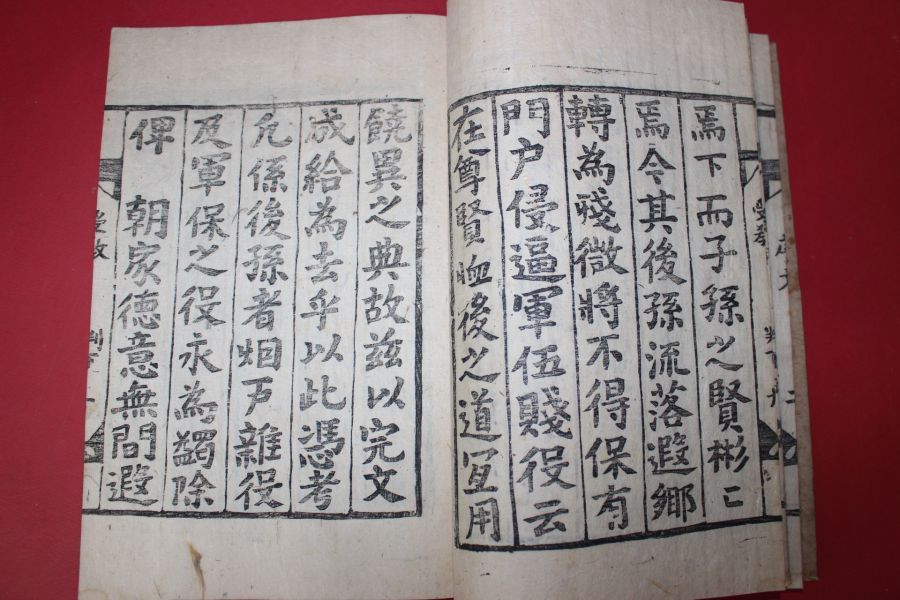 焉下而子孫之賢彬〻
焉今其後孫流落遐鄉
轉為殘微將不得保有
門户侵逼軍伍賤役云
在尊賢恤後之道宜用
饒異之典故玆以完文
成給為去乎以此憑考
凡係後孫者烟戸雜役
及軍保之役永為蠲除
俾　朝家德意無間遐
受教